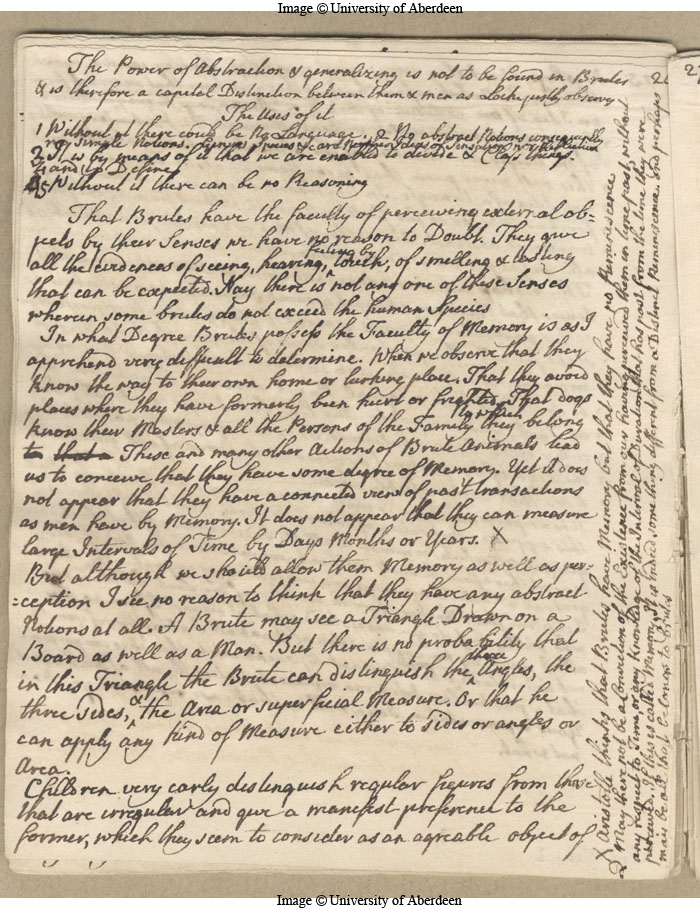 Image © University of Aberdeen
The Power of Abstraction & generalizing is not to be found in Brutes
& is therefore a capital Distinction between them & men as Locke justly observes
The Uses of it
1 Without it there could be No Language. 2 No abstract Notions consequently
no simple Notions.
3 It is by means of it that we are enabled to divide & Class things.
4 and to Define
5 Without it there can be no Reasoning
That Brutes have the faculty of perceiving external ob=
jects by their Senses we have no reason to Doubt. They give
all the evidences of seeing, hearing, feeling by touch, of smelling & tasting
that can be expected. Nay there is not any one of these Senses
wherein some brutes do not exceed the human Species
In what Degree Brutes possess the Faculty of Memory is as I
apprehend very difficult to determine. When we observe that they
know the way to their own home or lurking place. That they avoid
places where they have formerly been hurt or frighted. That dogs
know their Masters & all the Persons of the Family to which they belong
to that a These and many other Actions of Brute Animals lead
us to conceive that they have some degree of Memory. Yet it does
not appear that they have a connected view of past transactions
as men have by Memory. It does not appear that they can measure
large Intervals of Time by Days Months or Years. X
But although we should allow them Memory as well as per=
=ception I see no reason to think that they have any abstract
Notions at all. A Brute may see a Triangle Drawn on a
Board as well as a Man. But there is no probability that
in this Triangle the Brute can distinguish the three Angles, the
three Sides, or the Area or superficial Measure. Or that he
can apply any kind of Measure either to sides or angles or
Area.
Children very early distinguish regular figures from those
that are irregular and give a manifest preference to the
former, which they seem to consider as an agreable object of
X Aristotle thinks that Brutes have Memory but that they have no Reminiscence
Q May there not be a Conviction of the Existence from our having perceived them in time past, without
any respect to Time or any Knowledge of the Interval of Duration that has past from the time they were
perceived. If this is called Memory it is indeed something different from a Distinct Reminiscence. and perhaps
may be all that belongs to Brutes
27
Image © University of Aberdeen